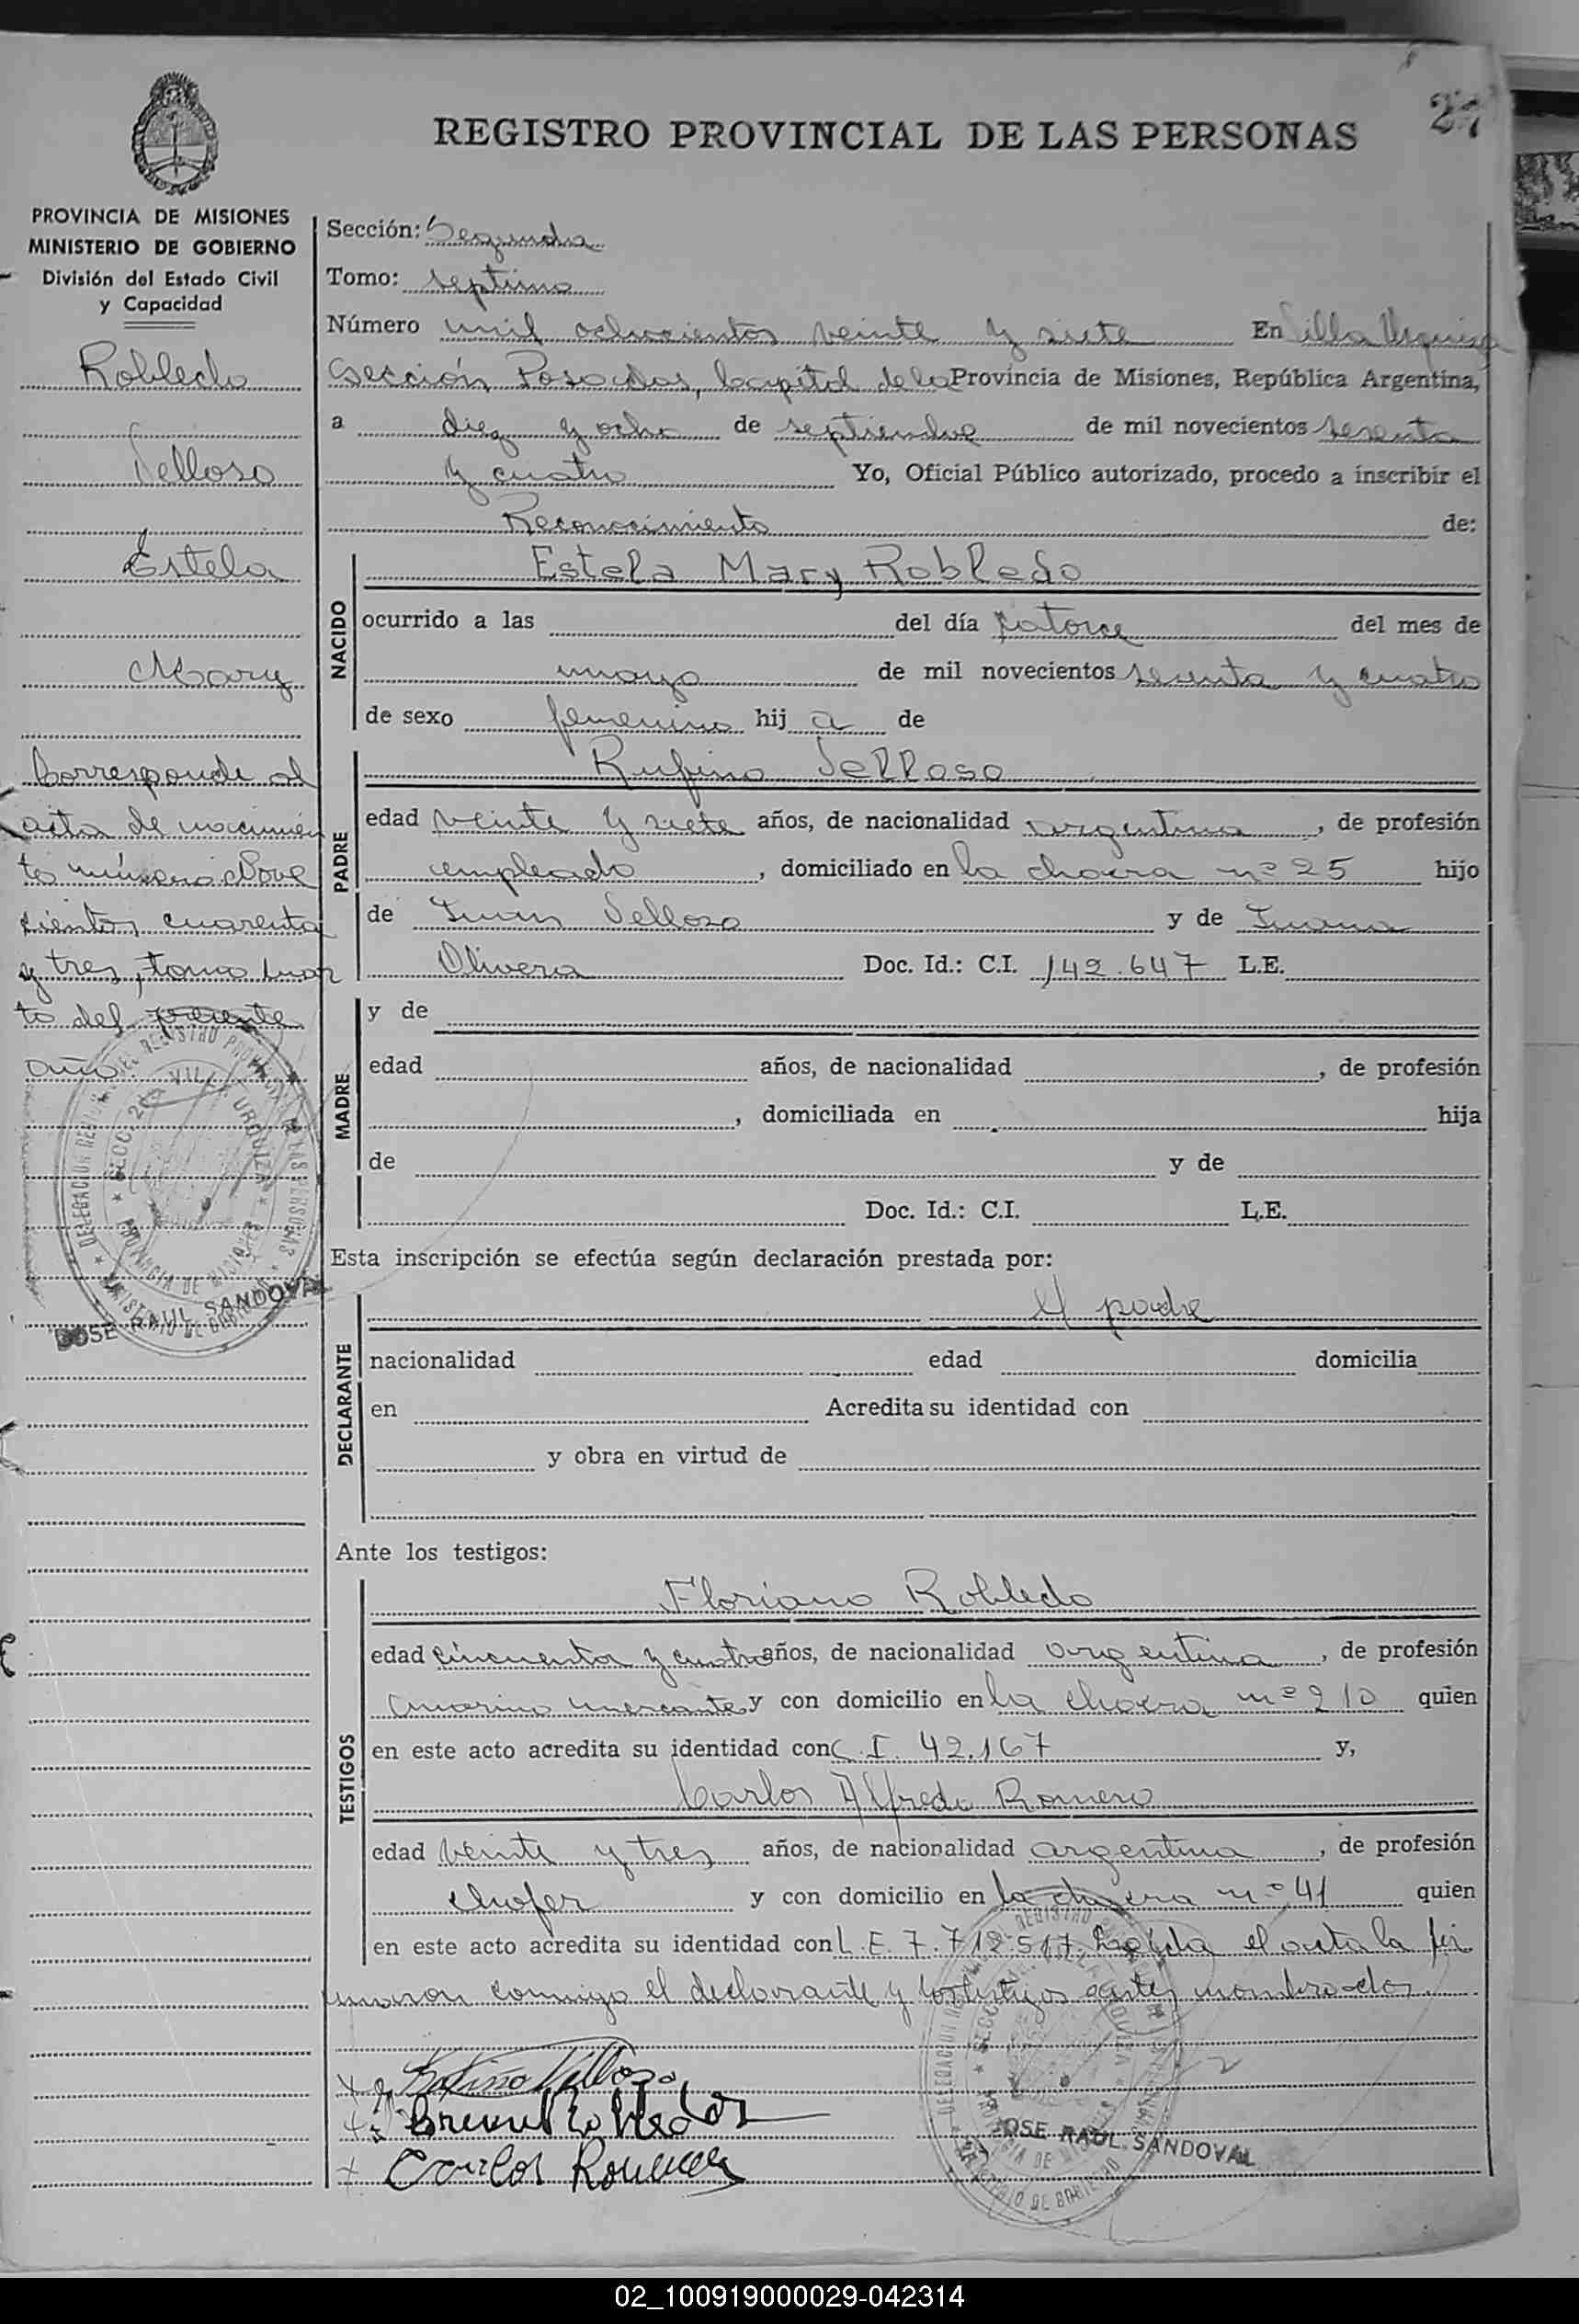 27
REGISTRO PROVINCIAL DE LAS PERSONAS
PROVINCIA DE MISIONES
MINISTERIO DE GOBIERNO
División del Estado Civil
y Capacidad
Robledo
Velloso
Estela
Mary
Corresponde al
acta de nacimien
to número Nove
cientos cuarenta
y tres, tomo cuar
to del presente
año.
DELEGACION DEL REGISTRO PROVINCIAL DE LAS PERSONAS
SECC. 2da VILLA URQUIZA
PROVINCIA DE MISIONES
MINISTERIO DE GOBIERNO
JOSE RAUL SANDOVAL
Sección: Segunda
Tomo: septimo
Número mil ochocientos veinte y siete En Villa Urquiza
Sección Posadas, Capital de la Provincia de Misiones, República Argentina,
a diez y ocho de septiembre de mil novecientos sesenta
y cuatro Yo, Oficial Público autorizado, procedo a inscribir el
Reconocimiento de:
NACIDO
Estela Mary Robledo
ocurrido a las del día catorce del mes de
mayo de mil novecientos sesenta y cuatro
de sexo femenino hij a de
PADRE
Rufino Velloso
edad veinte y siete años, de nacionalidad argentina, de profesión
empleado, domiciliado en la chacra nº 25 hijo
de Juan Velloso y de Juana
Olivera Doc. Id.: C.I. 142.647 L.E.
MADRE
y de
edad años, de nacionalidad , de profesión
, domiciliada en hija
de y de
Doc. Id.: C.I. L.E.
Esta inscripción se efectúa según declaración prestada por:
DECLARANTE
El padre
nacionalidad edad domicilia
en Acredita su identidad con
y obra en virtud de
Ante los testigos:
TESTIGOS
Floriano Robledo
edad cincuenta y cuatro años, de nacionalidad argentina, de profesión
marino mercante y con domicilio en la chacra nº 210 quien
en este acto acredita su identidad con C.I. 42.167 y,
Carlos Alfredo Romero
edad veinte y tres años, de nacionalidad argentina, de profesión
chofer y con domicilio en la chacra nº 41 quien
en este acto acredita su identidad con L.E. 7.712.517. Leída el acta la fir
maron conmigo el declarante y los testigos antes nombrados
Rufino Velloso
Robledo
Carlos Romero
JOSE RAUL SANDOVAL
02_100919000029-042314